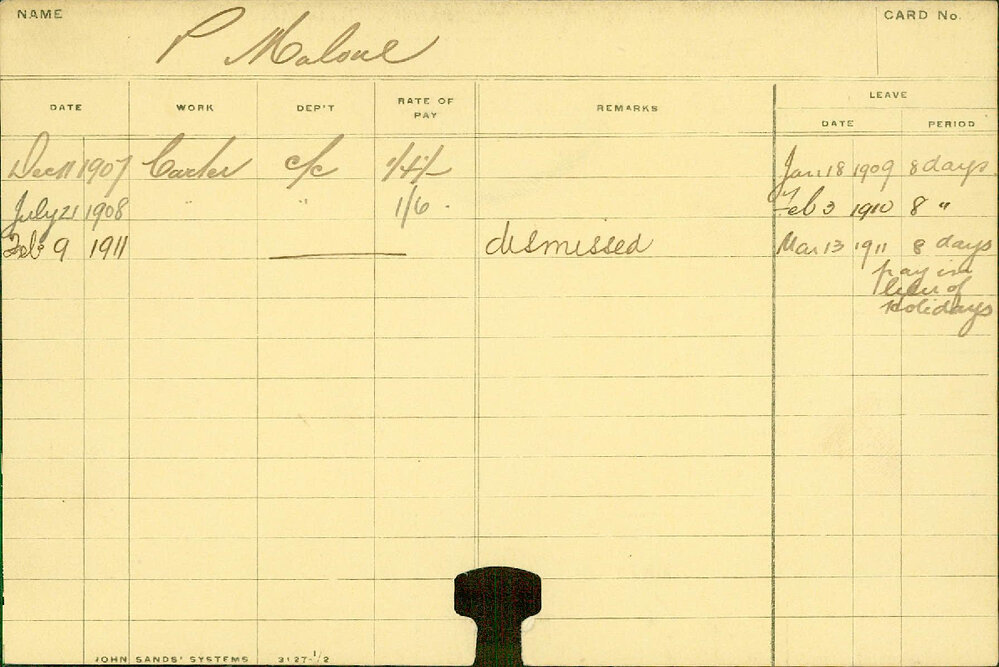 NAME P Malone CARD No.
LEAVE
DATE WORK DEP'T RATE OF PAY REMARKS DATE PERIOD
Dec 11 1907 Carter c/c 1/4/- Jan 18 1909 8 days
July 21 1908 " " 1/6 . Feb 3 1910 8 "
Feb 9 1911 dismissed Mar 13 1911 8 days
pay in
lieu of
Holidays
JOHN SANDS' SYSTEMS 3127-1/2